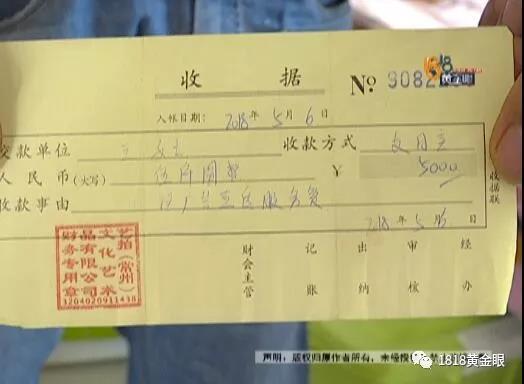 收 据
No
入帐日期：2018年5月6日
交款单位
收款方式 支付宝
人民币（大写）伍仟圆整 ¥ 5000
收款事由
收据联
2018年5月 日
艺拍（常州）
文化艺术
品有限公司
财务专用章
财会主管 记账 出纳 审核 经办
1818
黄金眼
声明：版权归原作者所有，未经授
1818黄金眼